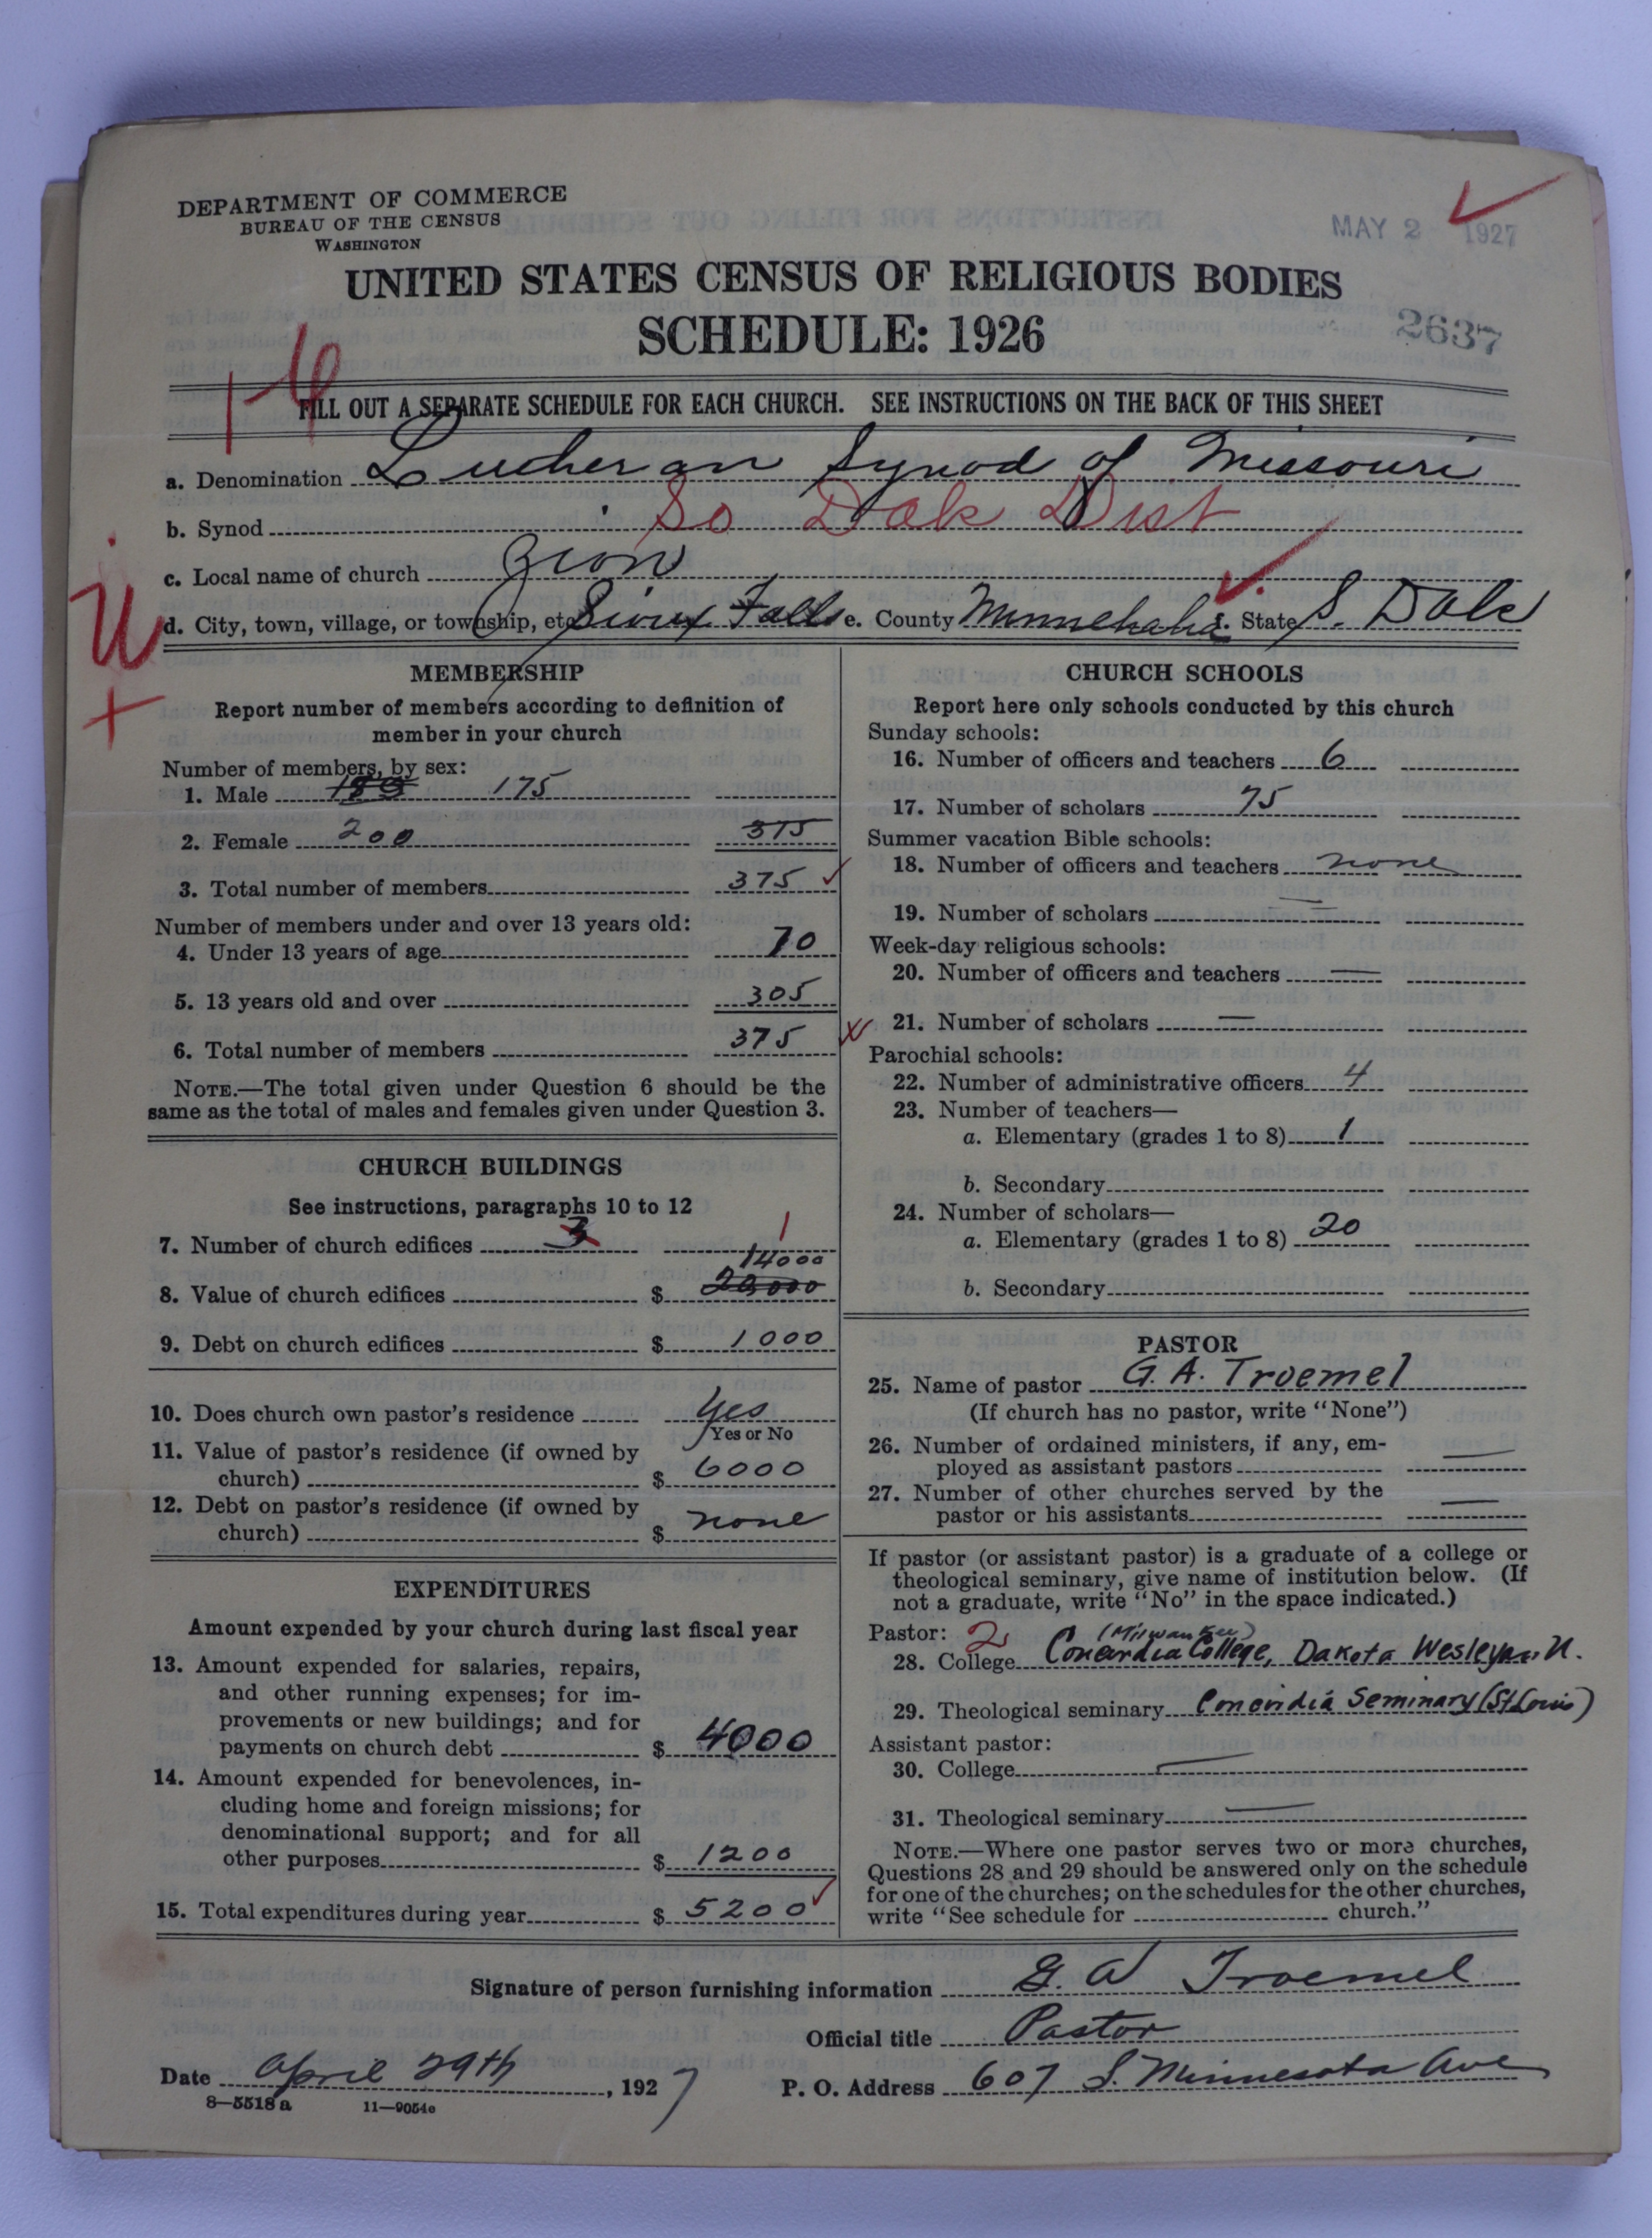 DEPARTMENT OF COMMERCE
BUREAU OF THE CENSUS
WASHINGTON
MAY 2 1927
UNITED STATES CENSUS OF RELIGIOUS BODIES
SCHEDULE: 1926
2637
FILL OUT A SEPARATE SCHEDULE FOR EACH CHURCH. SEE INSTRUCTIONS ON THE BACK OF THIS SHEET
a. Denomination Lutheran Synod of Missouri
b. Synod So Dak Dist
c. Local name of church Zion
d. City, town, village, or township, etc. Sioux Falls e. County Minnehaha f. State S. Dak
MEMBERSHIP
Report number of members according to definition of
member in your church
Number of members, by sex:
1. Male 175
2. Female 200 375
3. Total number of members 375
Number of members under and over 13 years old:
4. Under 13 years of age 70
5. 13 years old and over 305
6. Total number of members 375
NOTE.—The total given under Question 6 should be the
same as the total of males and females given under Question 3.
CHURCH BUILDINGS
See instructions, paragraphs 10 to 12
7. Number of church edifices 3 1
14000
8. Value of church edifices $ 20000
9. Debt on church edifices $ 1000
10. Does church own pastor's residence Yes
Yes or No
11. Value of pastor's residence (if owned by
church) $ 6000
12. Debt on pastor's residence (if owned by
church) $ none
EXPENDITURES
Amount expended by your church during last fiscal year
13. Amount expended for salaries, repairs,
and other running expenses; for im-
provements or new buildings; and for
payments on church debt $ 4000
14. Amount expended for benevolences, in-
cluding home and foreign missions; for
denominational support; and for all
other purposes $ 1200
15. Total expenditures during year $ 5200
CHURCH SCHOOLS
Report here only schools conducted by this church
Sunday schools:
16. Number of officers and teachers 6
17. Number of scholars 75
Summer vacation Bible schools:
18. Number of officers and teachers none
19. Number of scholars
Week-day religious schools:
20. Number of officers and teachers —
21. Number of scholars —
Parochial schools:
22. Number of administrative officers 4
23. Number of teachers—
a. Elementary (grades 1 to 8) 1
b. Secondary
24. Number of scholars—
a. Elementary (grades 1 to 8) 20
b. Secondary
PASTOR
25. Name of pastor G. A. Troemel
(If church has no pastor, write "None")
26. Number of ordained ministers, if any, em-
ployed as assistant pastors —
27. Number of other churches served by the
pastor or his assistants —
If pastor (or assistant pastor) is a graduate of a college or
theological seminary, give name of institution below. (If
not a graduate, write "No" in the space indicated.)
Pastor: 2 (Milwaukee)
28. College Concordia College, Dakota Wesleyan U.
29. Theological seminary Concordia Seminary (St Louis)
Assistant pastor:
30. College —
31. Theological seminary —
NOTE.—Where one pastor serves two or more churches,
Questions 28 and 29 should be answered only on the schedule
for one of the churches; on the schedules for the other churches,
write "See schedule for church."
Signature of person furnishing information G. A Troemel
Official title Pastor
Date April 29th, 1927 P. O. Address 607 S. Minnesota Ave
8—5518 a 11—9054c